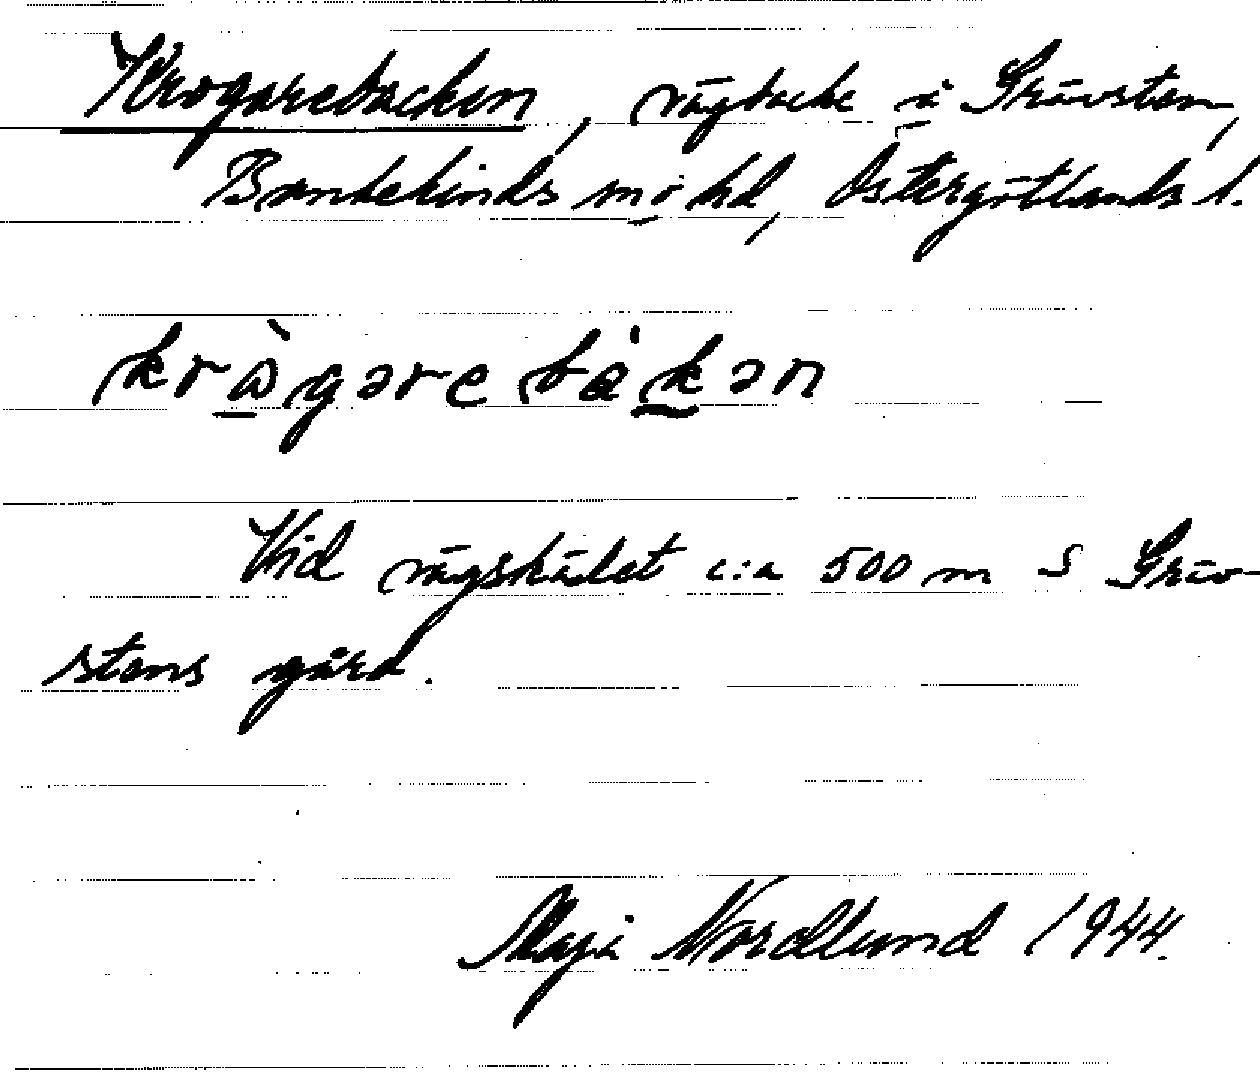 Krogarebacken, vägbacke i Grävsten,
Bankekinds sn o hd, Östergötlands l.
krògarebákan
Vid vägskälet c:a 500 m S Gräv-
stens gård.
Maja Nordlund 1944.